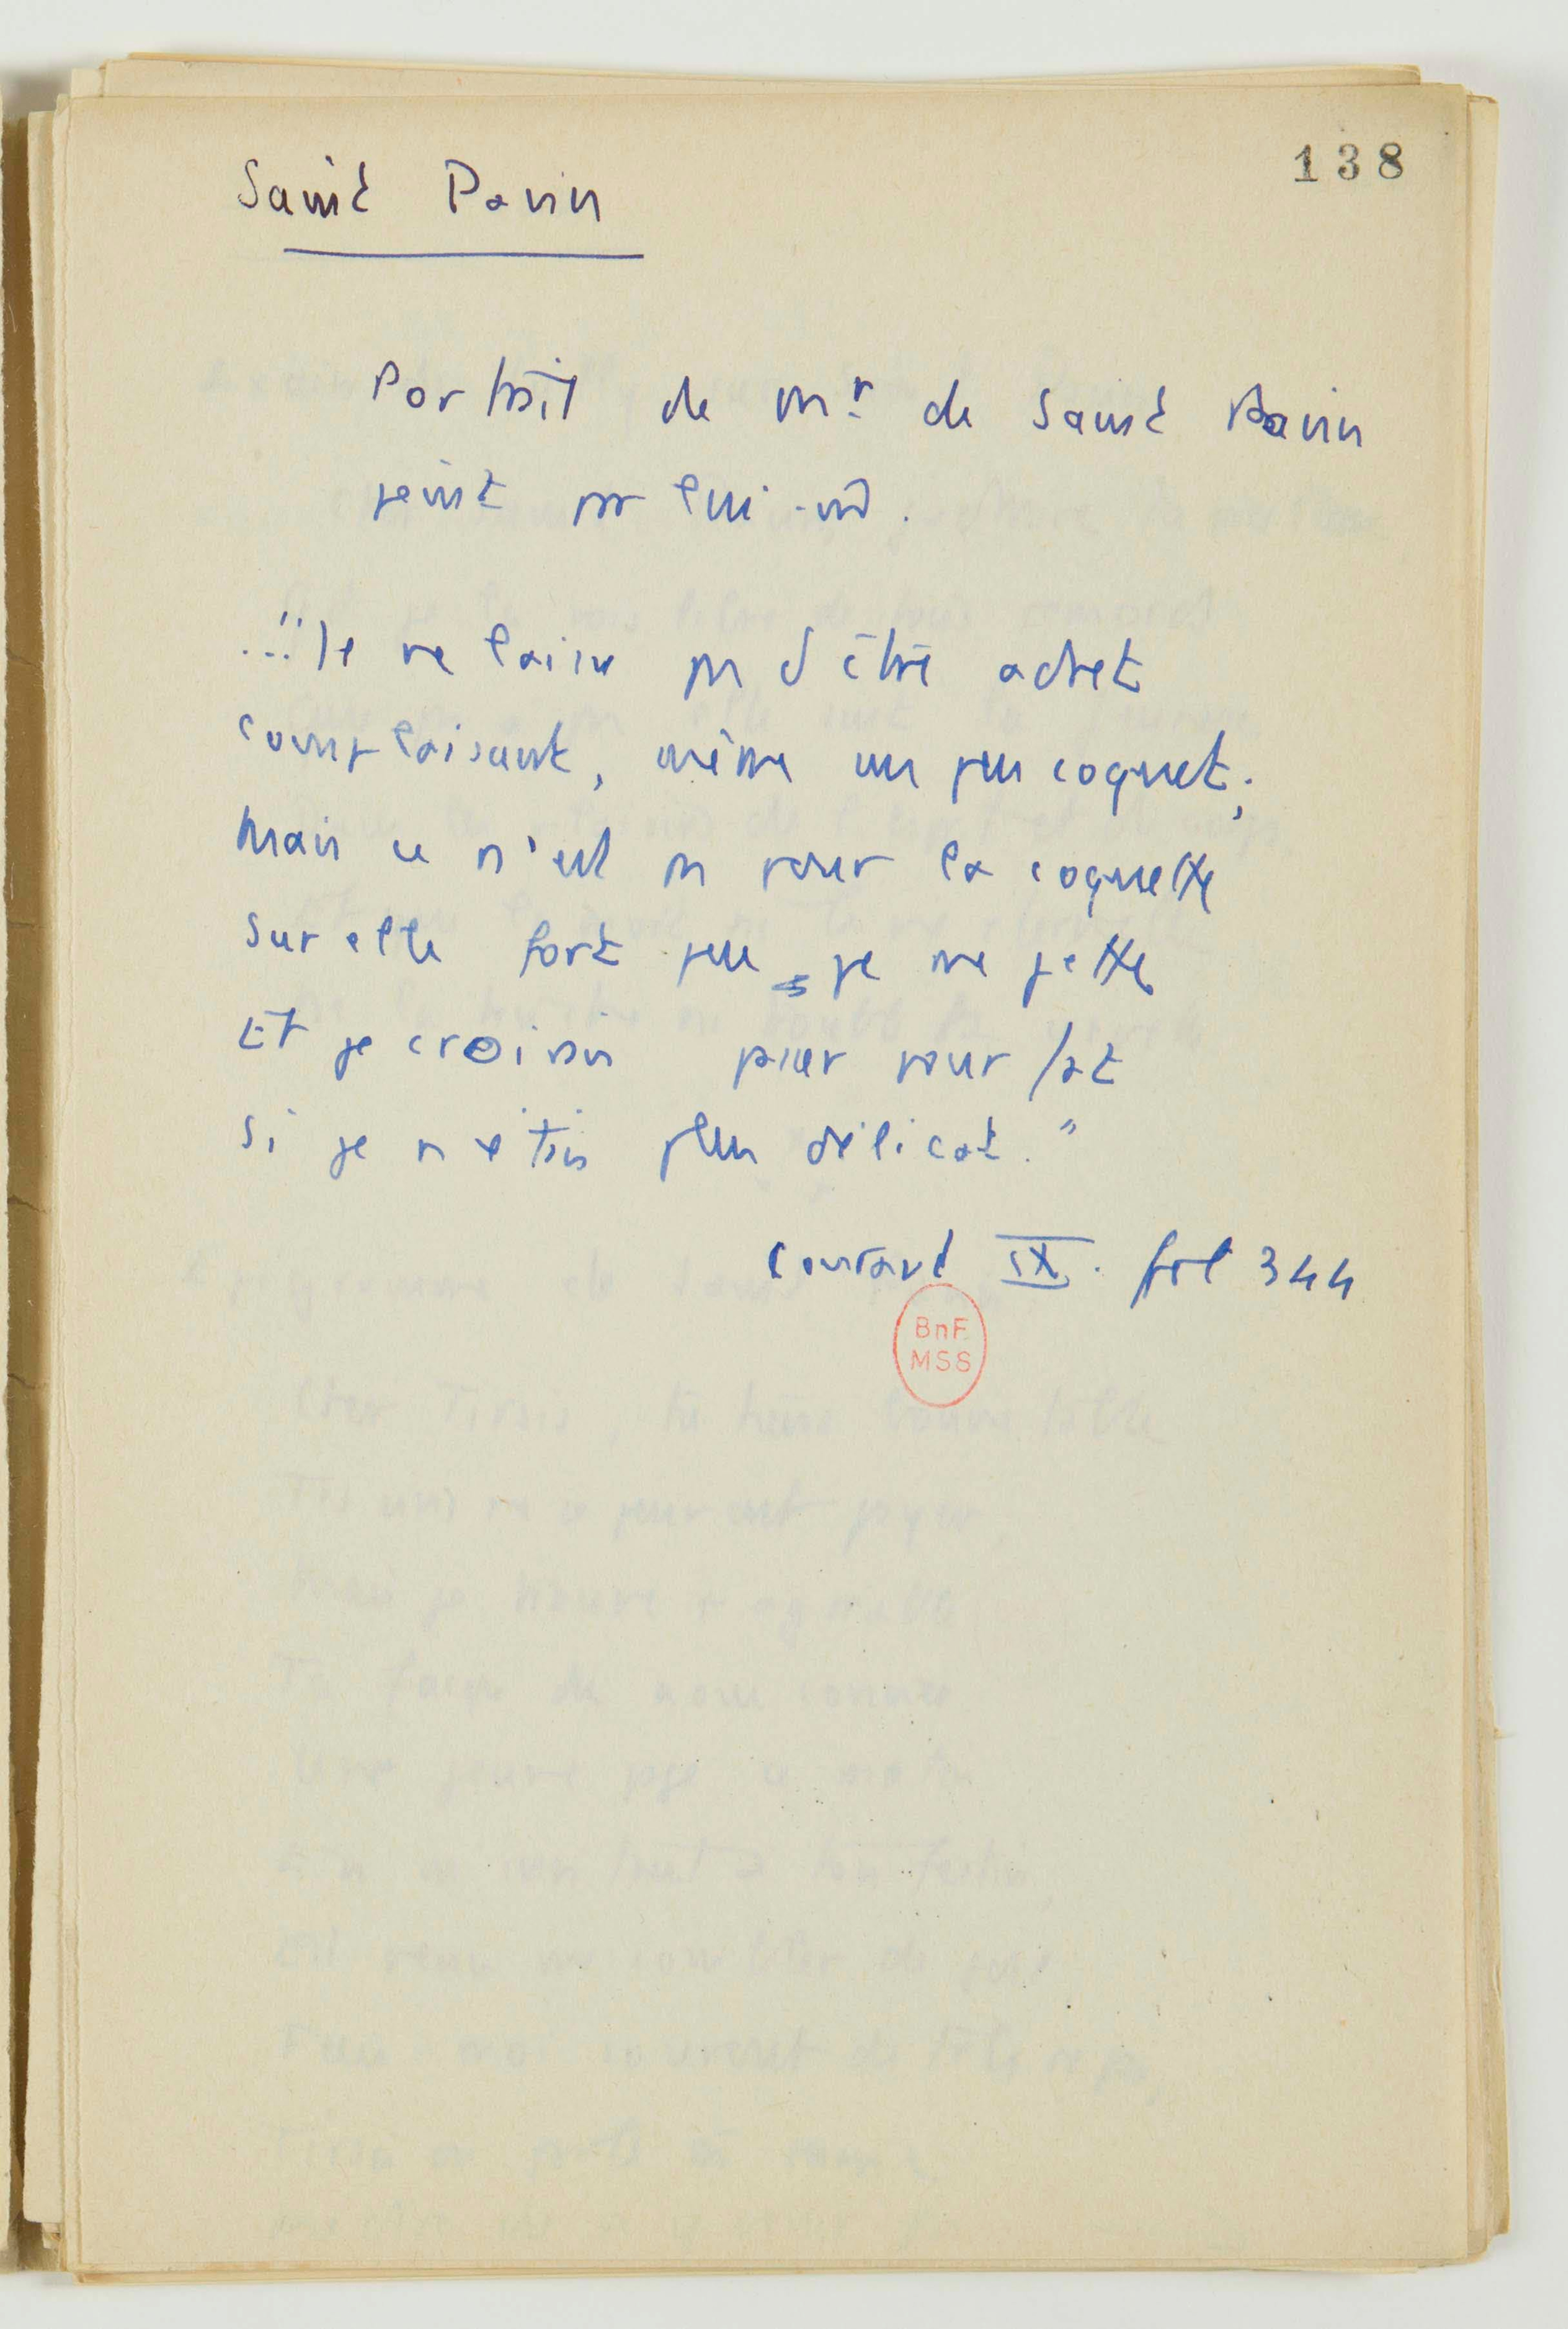 138
Saint Pavin
Portrait de Mr de Saint Pavin
peint par lui-m̂.
..."Je ne laisse pas d'être adret
complaisant, même un peu coquet;
Mais ce n'est pas pour la coquette
Sur elle fort peu je me jette
Et je croirais passer pour fat
Si je n'étais plus délicat."
Conrart IX. fol 344
BnF
MSS